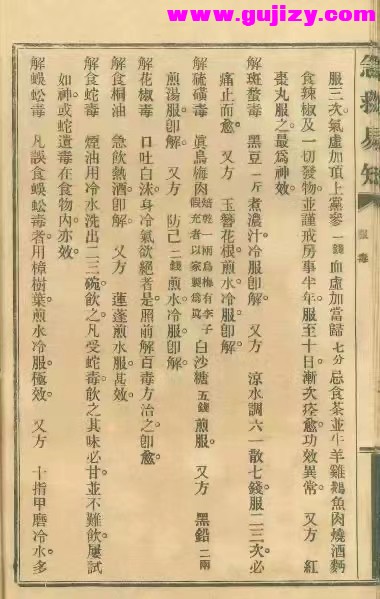 www.gujizy.com
急救易知
解毒
服三次氣虛加頂上黨參一錢血虛加當歸七分忌食茶並牛羊雞鵝魚肉燒酒麪
食辣椒及一切發物並謹戒房事半年服至十日漸次痊愈功效異常　又方　紅
棗丸服之最爲神效
解斑蝥毒　黑豆一斤煮濃汁冷服卽解　又方　涼水調六一散七錢服二三次必
痛止而愈　又方　玉簪花根煎水冷服卽解
解硫磺毒　眞烏梅肉焙乾一兩烏梅有李子假充者以家製爲眞白沙糖五錢煎服　又方　黑鉛二兩
煎湯服卽解　又方　防己二錢煎水冷服卽解
解花椒毒　口吐白沫身冷氣欲絕者是照前解百毒方治之卽愈
解食桐油　急飲熱酒卽解　又方　蓮蓬煎水服甚效
解食蛇毒　煙油用冷水洗出二三碗飲之凡受蛇毒飲之其味必甘並不難飲屢試
如神或蛇遺毒在食物內亦效
解蜈蚣毒　凡誤食蜈蚣毒者用樟樹葉煎水冷服極效　又方　十指甲磨冷水多